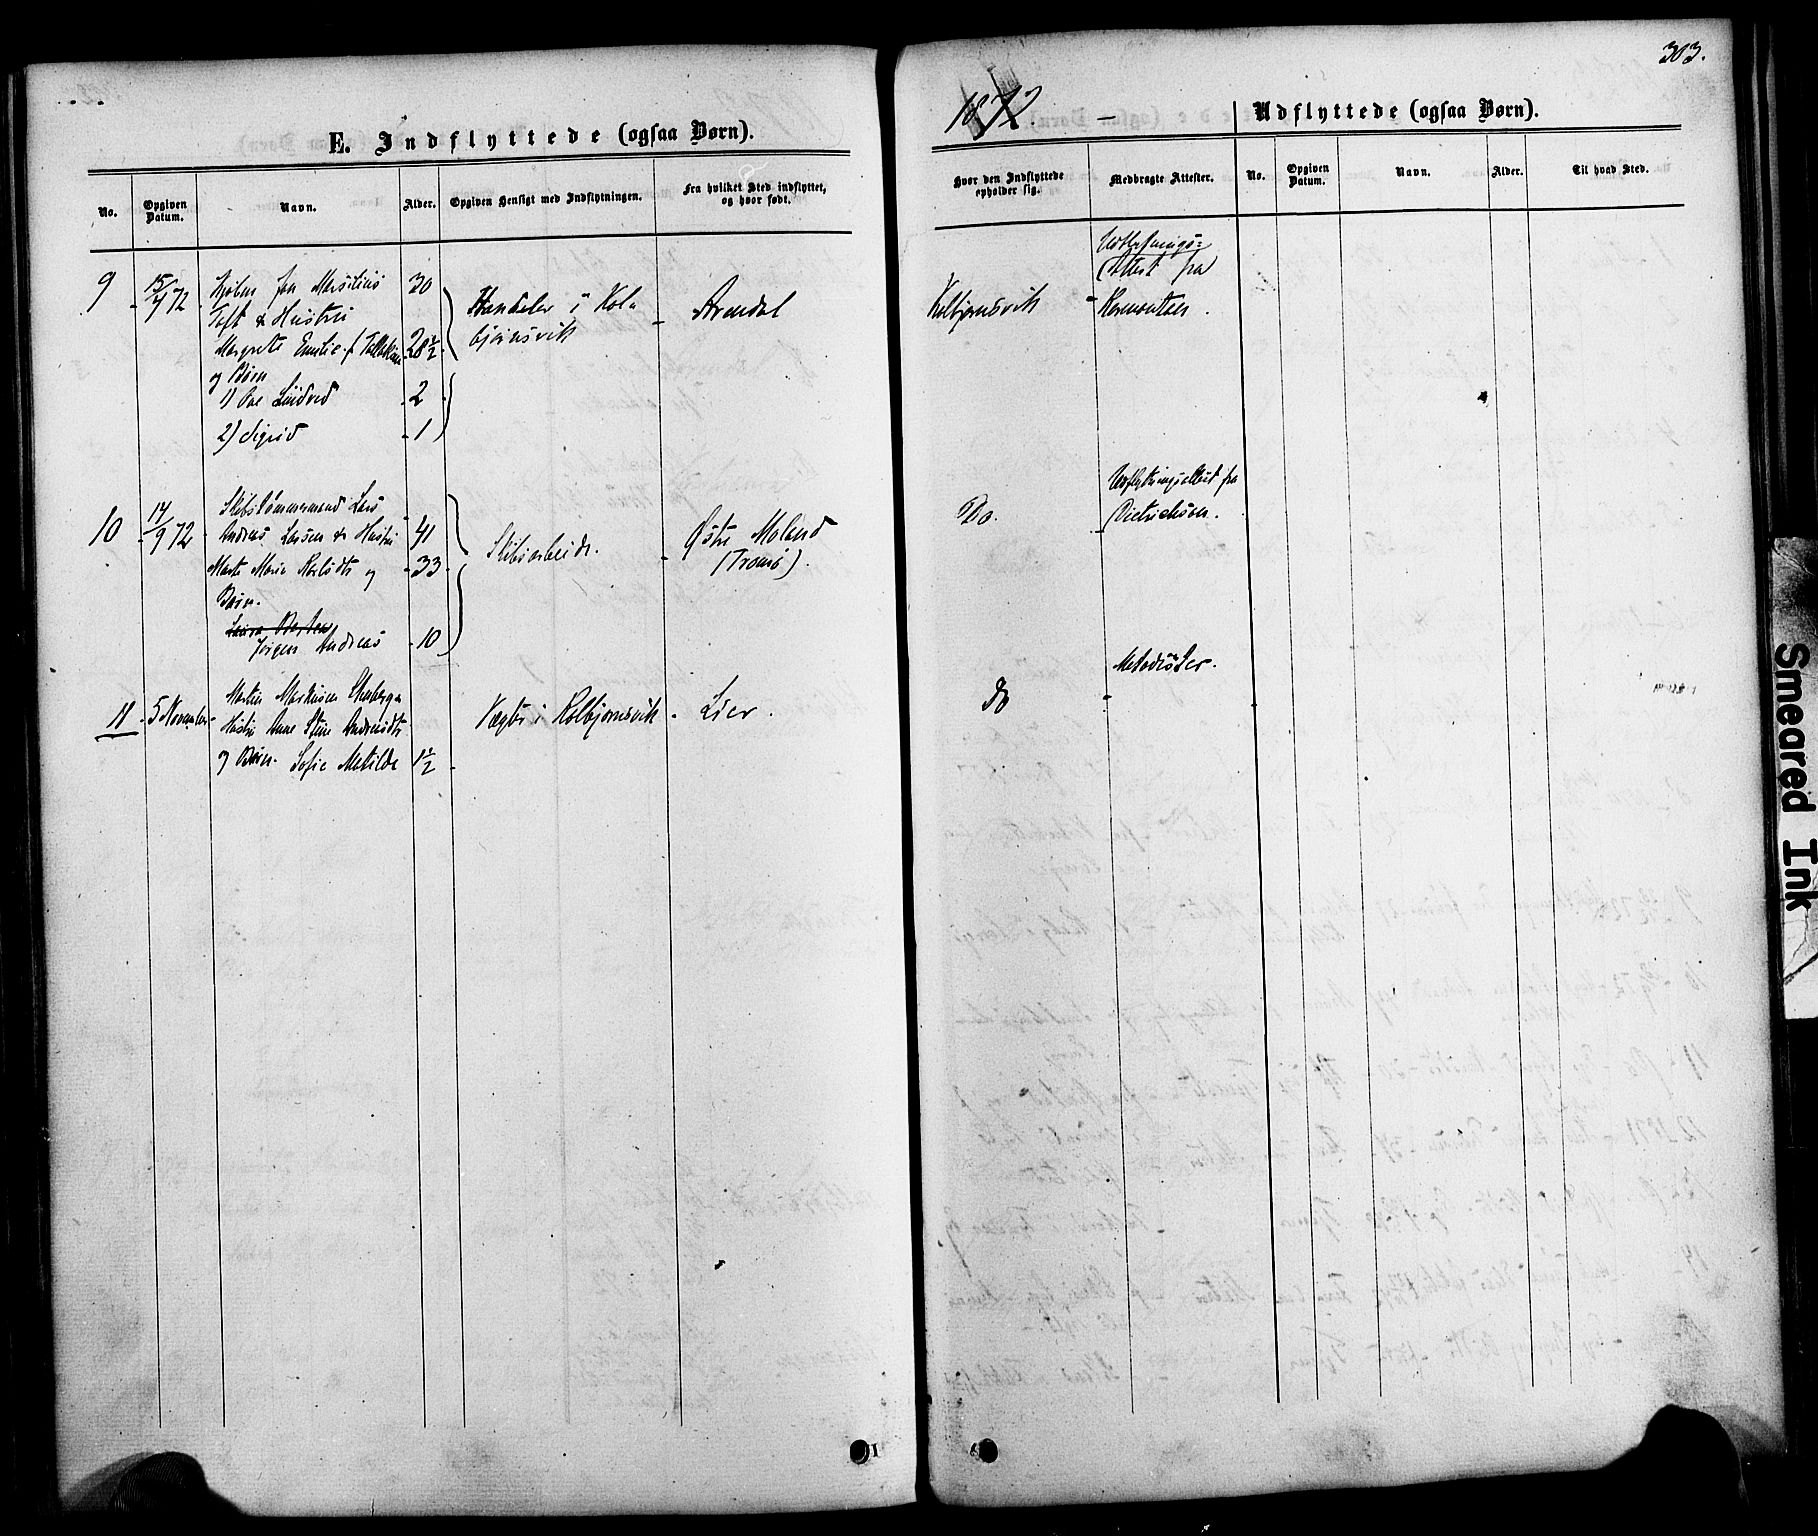 303.
1872 -
E. Indflyttede (ogsaa Børn).
Udflyttede (ogsaa Børn).
No.
Opgiven Datum.
Navn.
Alder.
Opgiven Hensigt med Indflytningen.
Fra hvilket Sted indflyttet, og hvor født.
Hvor den Indflyttede opholder sig.
Medbragte Attester.
No.
Opgiven Datum.
Navn.
Alder.
Til hvad Sted.
9 15/4 72
30
Toft & Hustru
Margrete Emilie f. 28½
og Børn
1) Ove 2
2) Sigrid 1
Handeler i Kol-
bjørnsvik
Arendal
Kolbjørnsvik
Attest fra
10 14/9 72
Skibstømmermand Lars
Andreas Larsen & Hustru 41
Marte Marie og 33
Børn.
Laura
Jørgen Andreas 10
Skibsarbeide.
Østre Moland
(Tromø).
Do.
Udflytningsattest fra
Dietrichson.
11 5 November
Martin
Hustru Anne Stine
og Børn. Sofie Matilde 1½
i Kolbjørnsvik
Lier.
Do
Metodister.
Smeared Ink